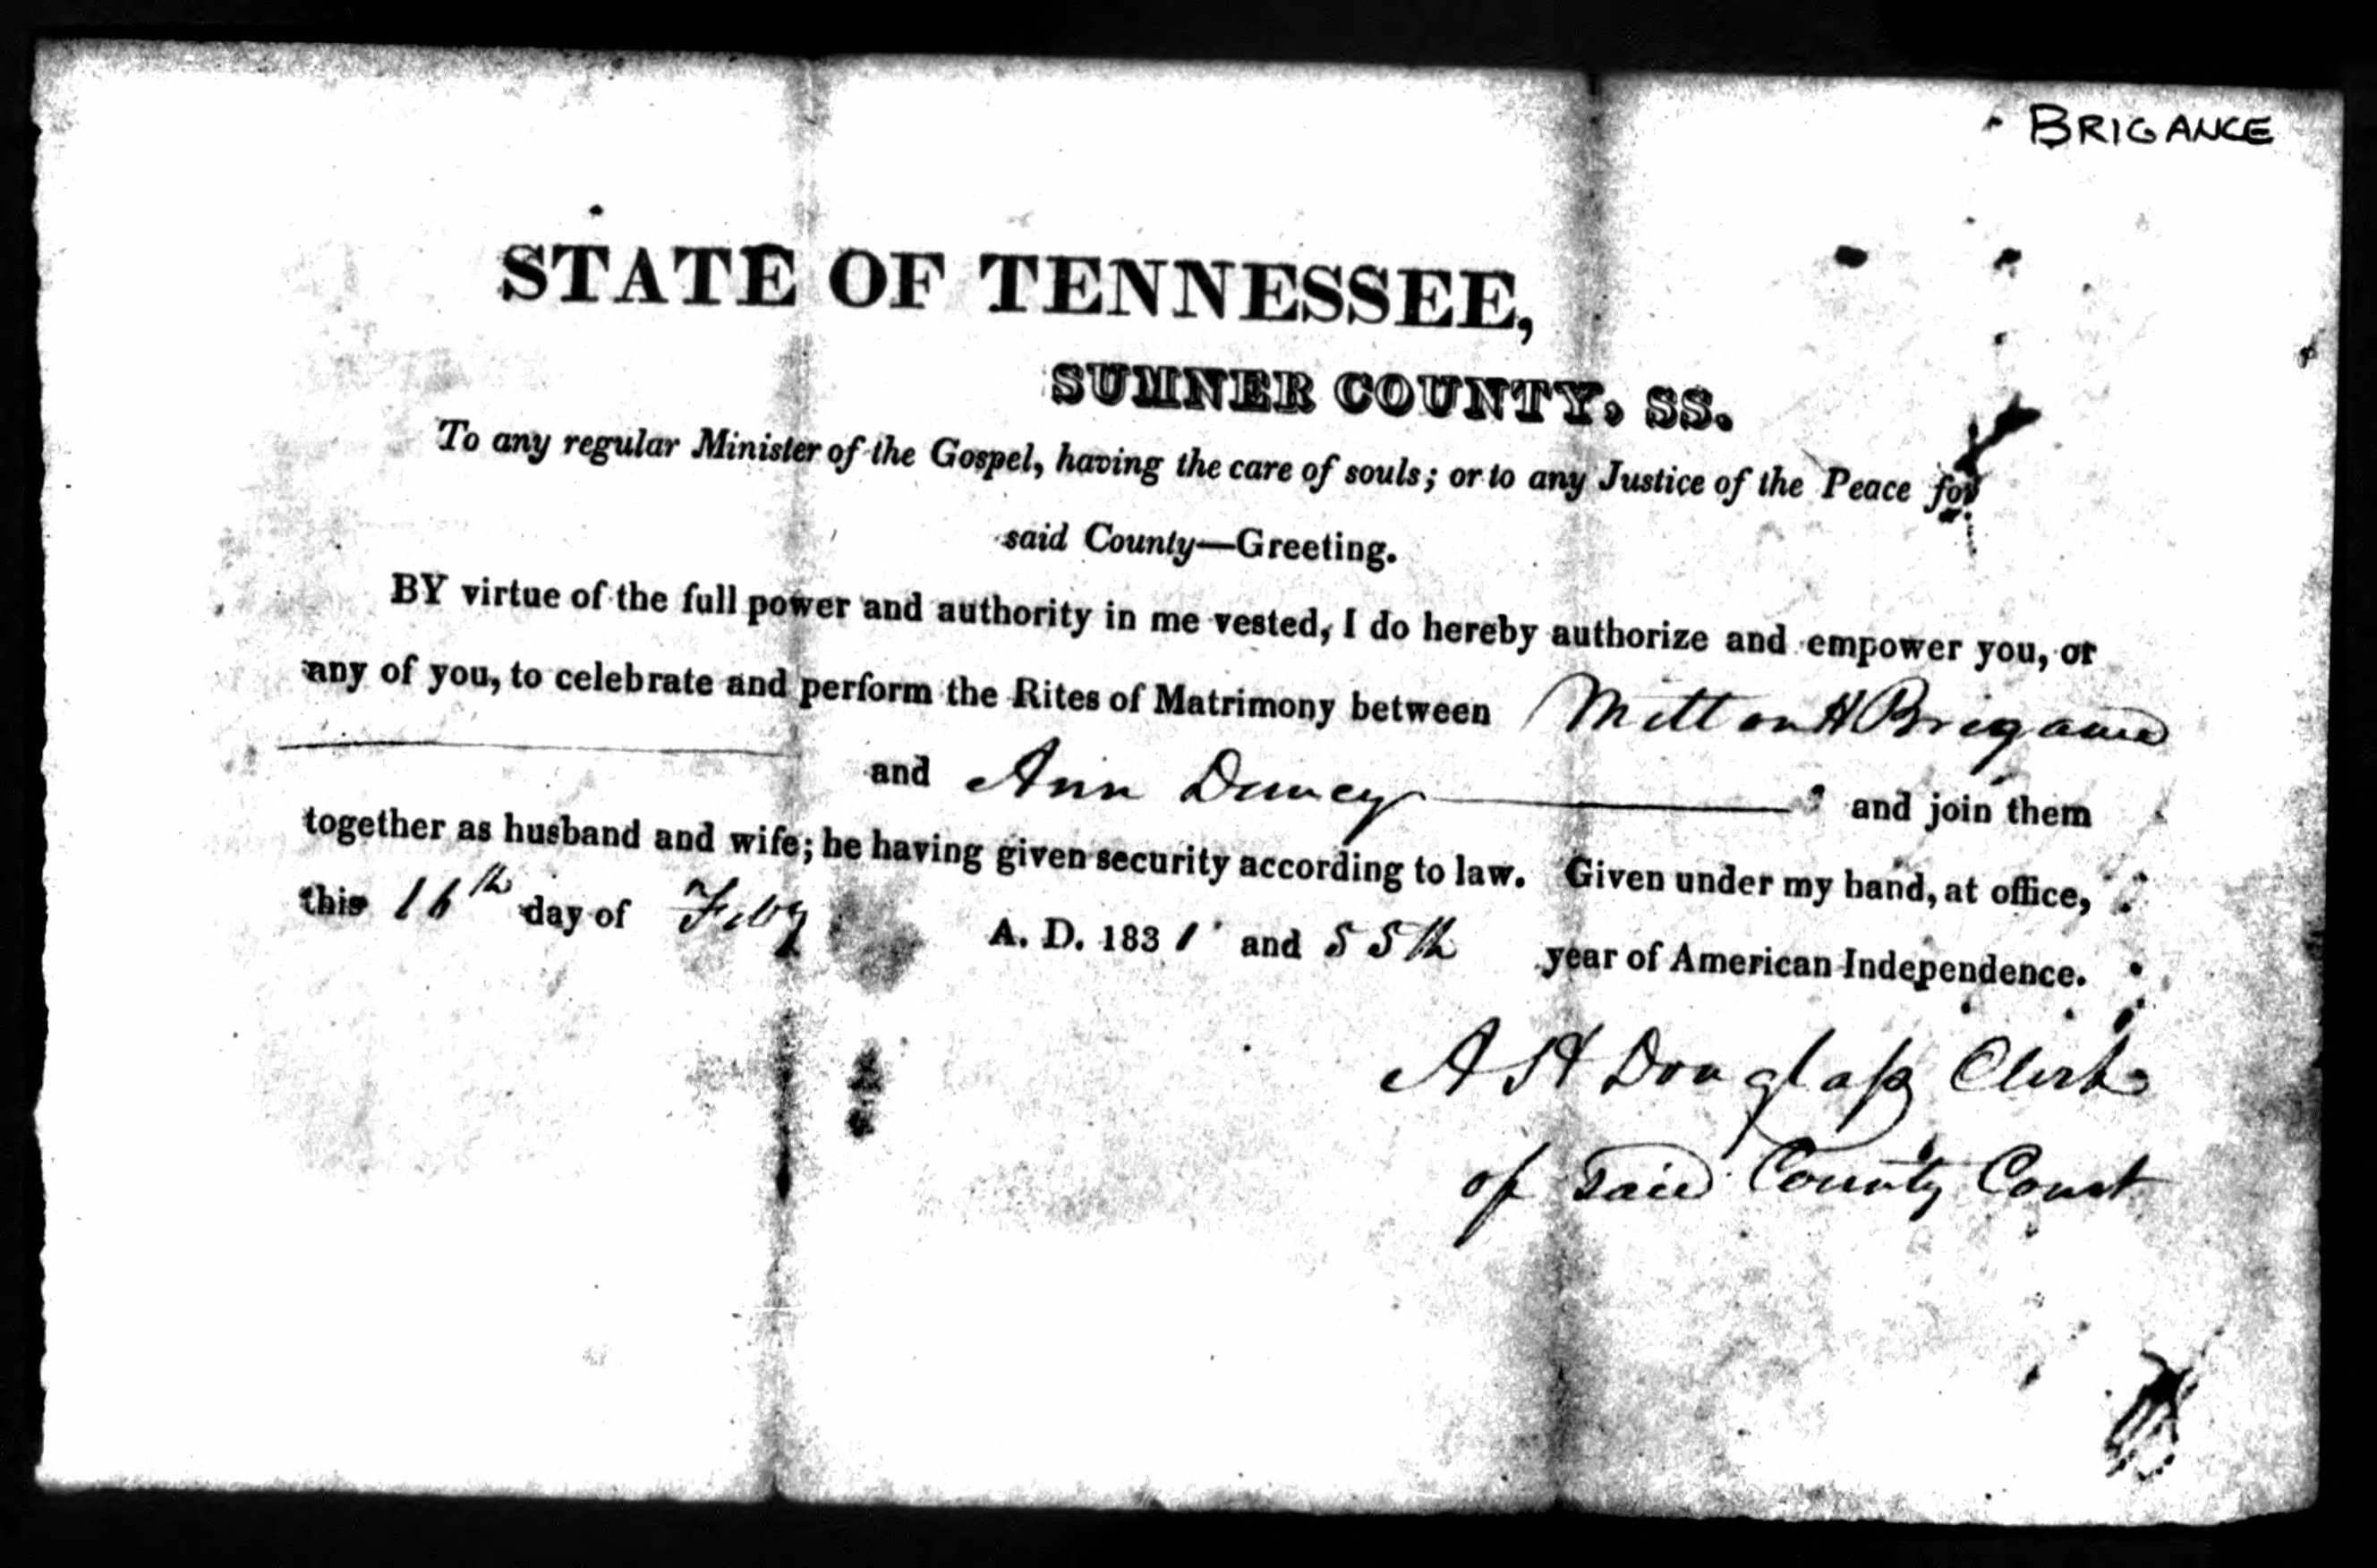 BRIGANCE
STATE OF TENNESSEE,
SUMNER COUNTY, SS.
To any regular Minister of the Gospel, having the care of souls; or to any Justice of the Peace for
said County—Greeting.
BY virtue of the full power and authority in me vested, I do hereby authorize and empower you, or
any of you, to celebrate and perform the Rites of Matrimony between Milton H Brigance
and Ann and join them
together as husband and wife; he having given security according to law. Given under my hand, at office,
this 16th day of Feby A. D. 1831 and 55th year of American Independence.
A H Douglass Clerk
of said County Court